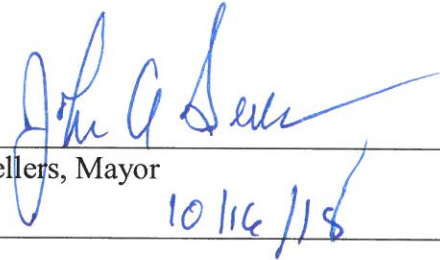 John A
ellers, Mayor
10/16/18